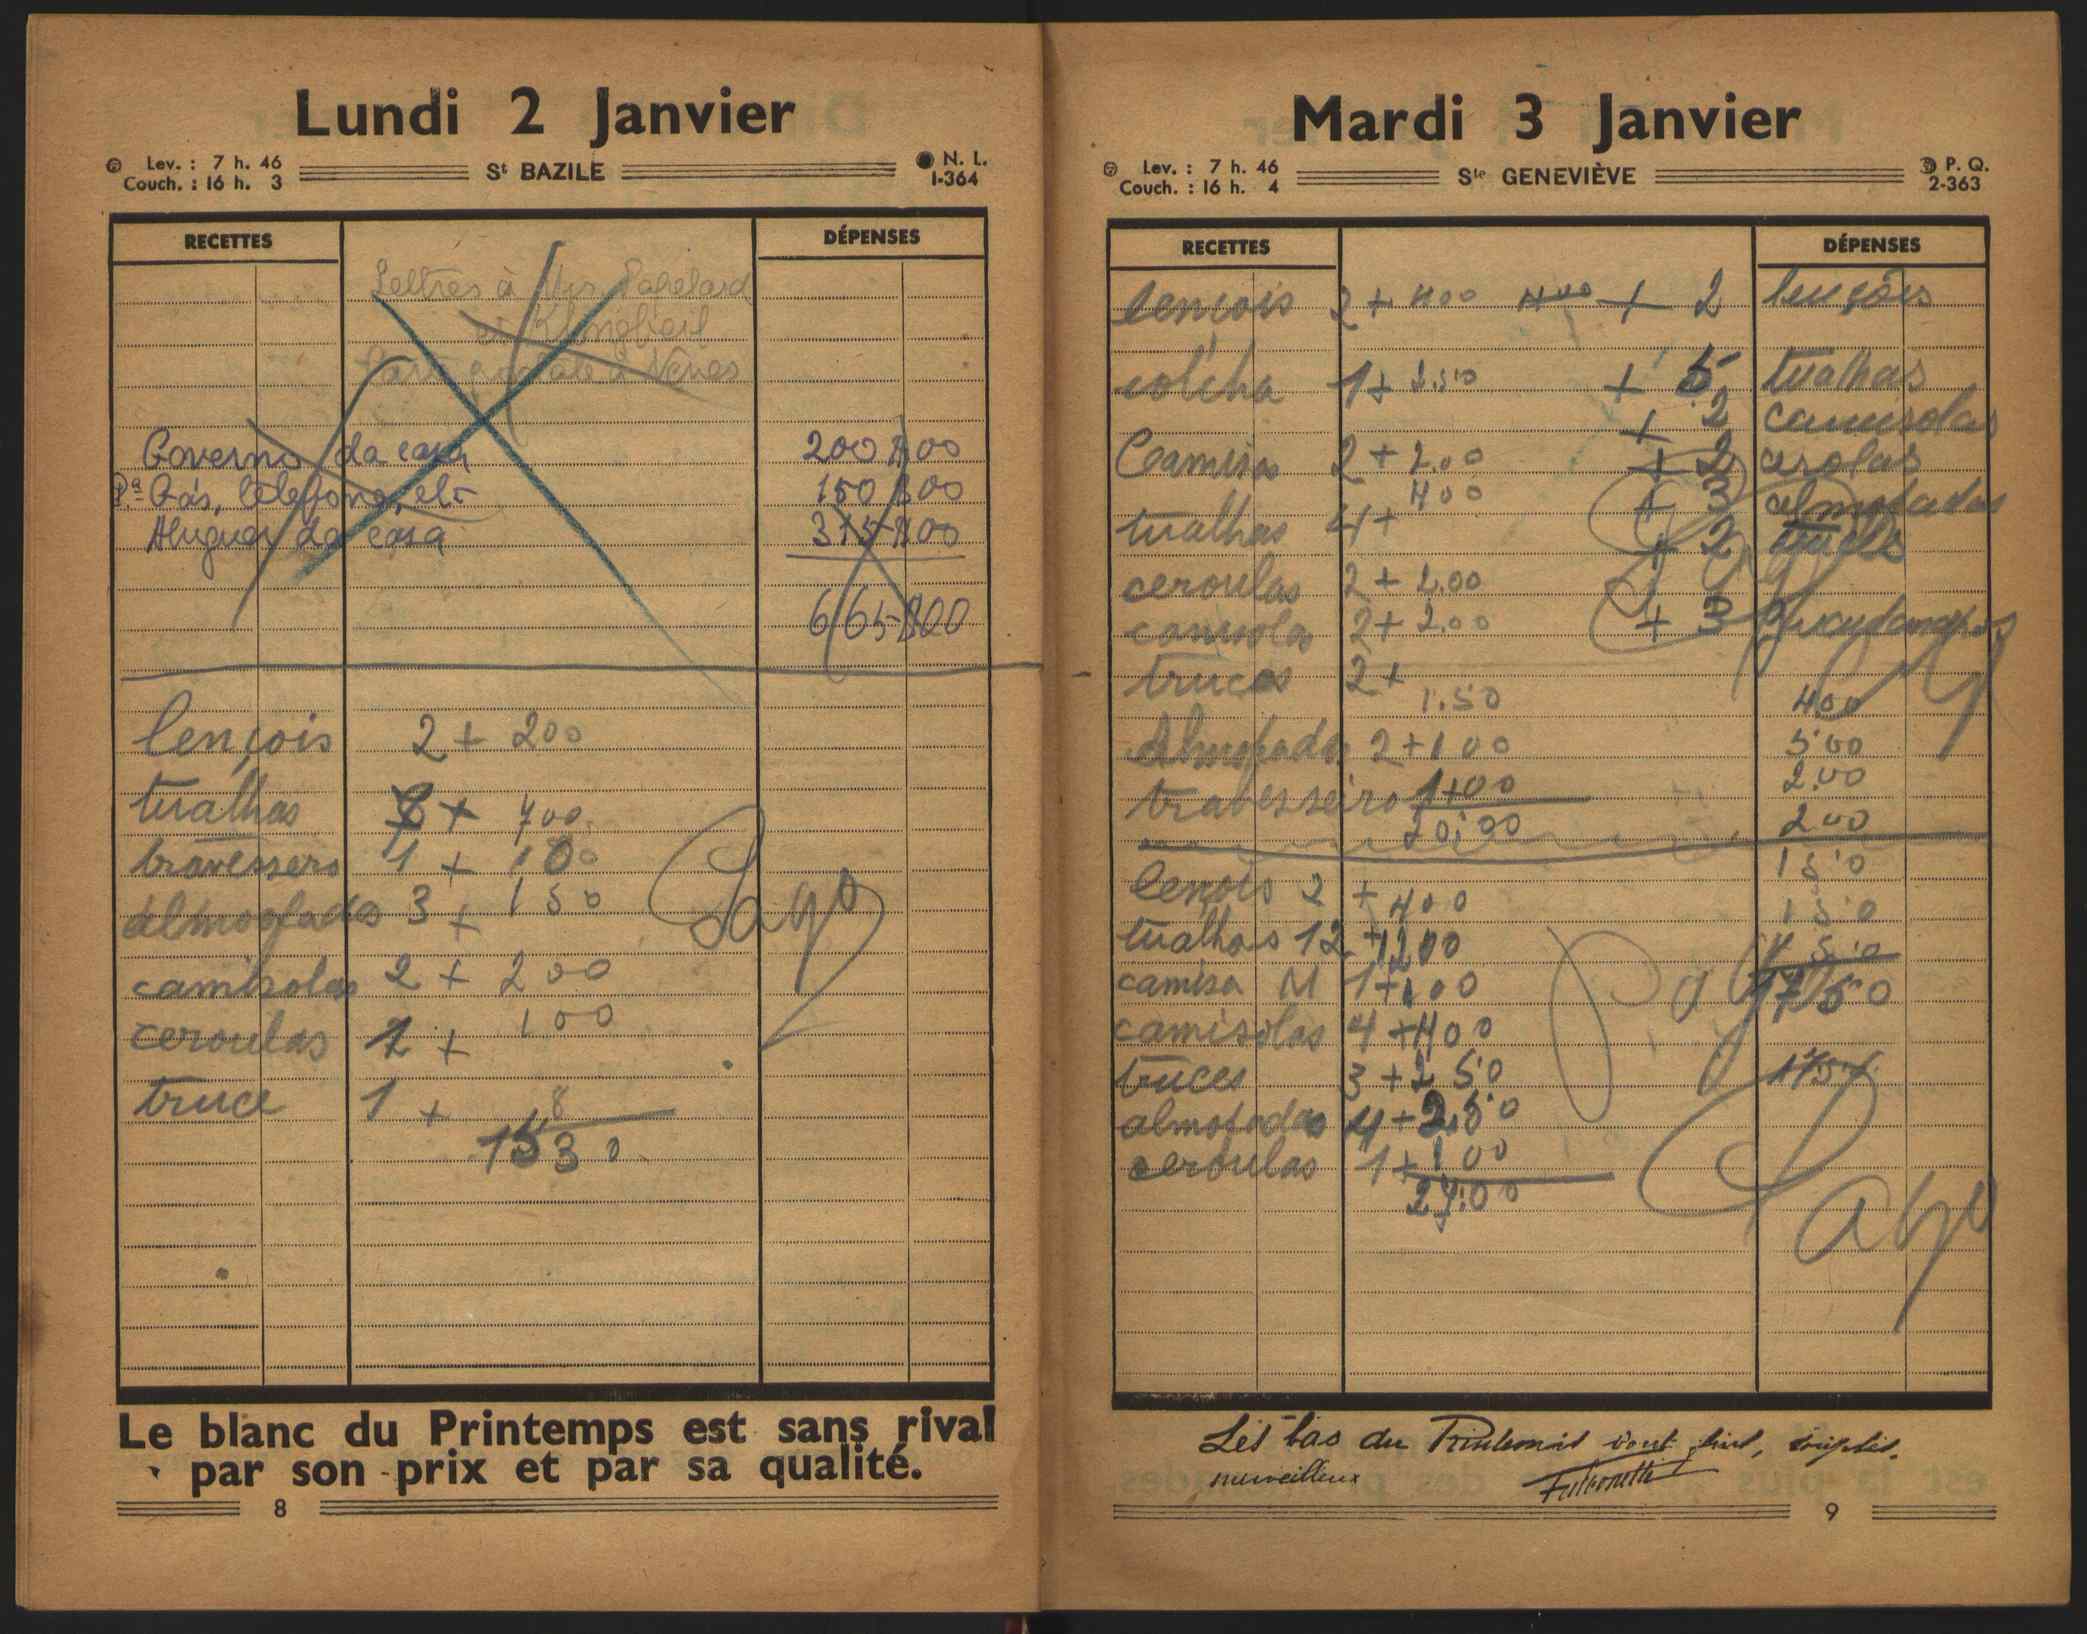 Lundi 2 Janvier
Lev. : 7 h. 46
Couch. : 16 h. 3
St BAZILE
N. L.
1-364
RECETTES
DÉPENSES
Lettres à Mrs. Papelard
et Klingbeil
Carte postale à
Governo da casa 200$00
Pª Gás, telefone, etc 150$00
Aluguer da casa 315$00
665$00
lençois 2 + 200
tualhas 7 + 700
travessero 1 + 100
almogfadas 3 + 150
camisolas 2 + 200
ceroulas 1 + 100
truce 1 + 8
1530
Pago
Le blanc du Printemps est sans rival
par son prix et par sa qualité.
8
Mardi 3 Janvier
Lev. : 7 h. 46
Couch. : 16 h. 4
Ste GENEVIÈVE
P. Q.
2-363
RECETTES
DÉPENSES
lencois 2 + 400 400 + 2 lençois
colcha 1 + + 5 tualhas
+ 2 camisolas
Camisa 2 + 2.00 + 2 cerolas
tualhas 4 + 400 + 3 almofadas
+ 2
ceroulas 2 + 2.00
camisola 2 + 2.00 + 3 guardanapos
truces 2 + 1.50
400
Almofada 2 + 100 500
travesseiro 1 + 00 2.00
20.00 200
150
lençois 2 + 400
150
tualhas 12 + 1200
50
camisa M 1 + 100 1750
Pago
camisolas 4 + 400
truces 3 + 2 50
almofadas 4 + 2.50
ceroulas 1 + 1 00
27.00
Pago
Les bas du Printemps sont fins, souples,
merveilleux
9